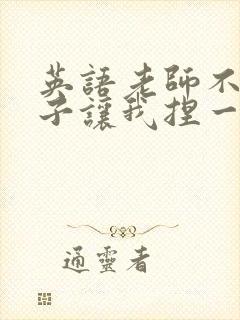 英語老師不
子讓我捏一
通靈者